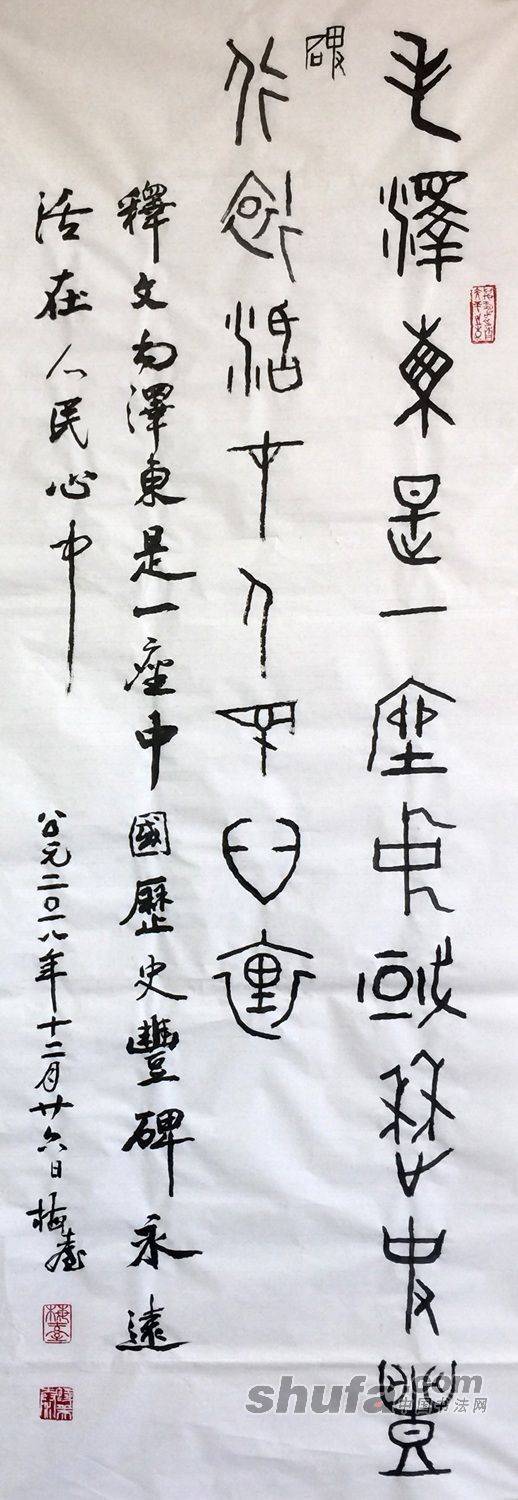 毛澤東是一座中國歷史豐
碑
永遠活在人民心中
釋文毛澤東是一座中國歷史豐碑永遠
活在人民心中
公元二〇一八年十二月廿六日梅臺
梅臺
shufa.com
中国书法网